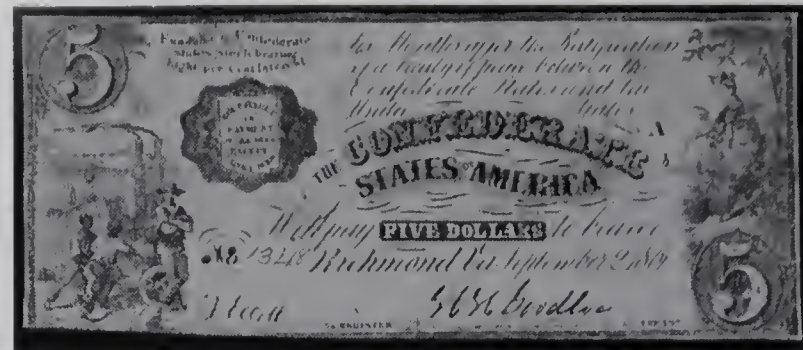 5
Fundable in Confederate
States Stock bearing
Eight per cent interest
Six Months after the Ratification
of a treaty of peace between the
Confederate States and the
United States
RECEIVABLE
IN
PAYMENT
OF ALL DUES
EXCEPT
THE CONFEDERATE
STATES OF AMERICA
Will pay FIVE DOLLARS to bearer
No 13418 Richmond Va September 2, 1861
5
REGISTER
TREASR